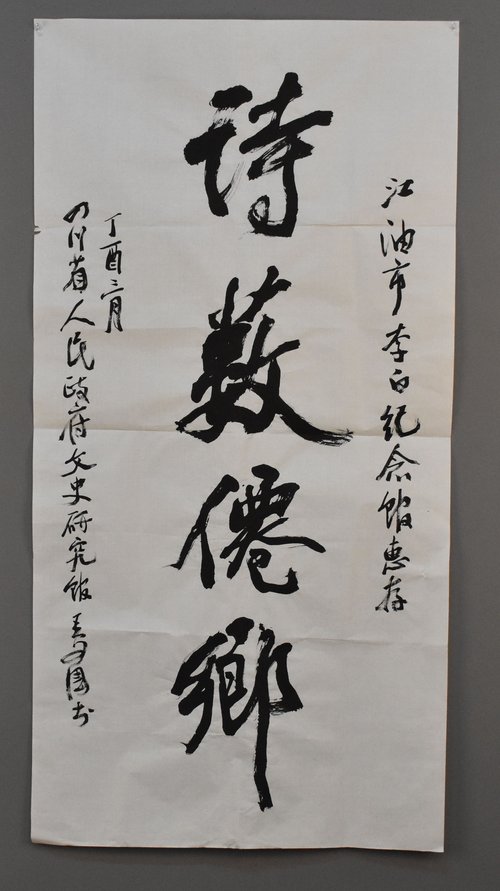 江油市李白纪念馆惠存
詩薮僊鄉
丁酉三月
四川省人民政府文史研究馆书